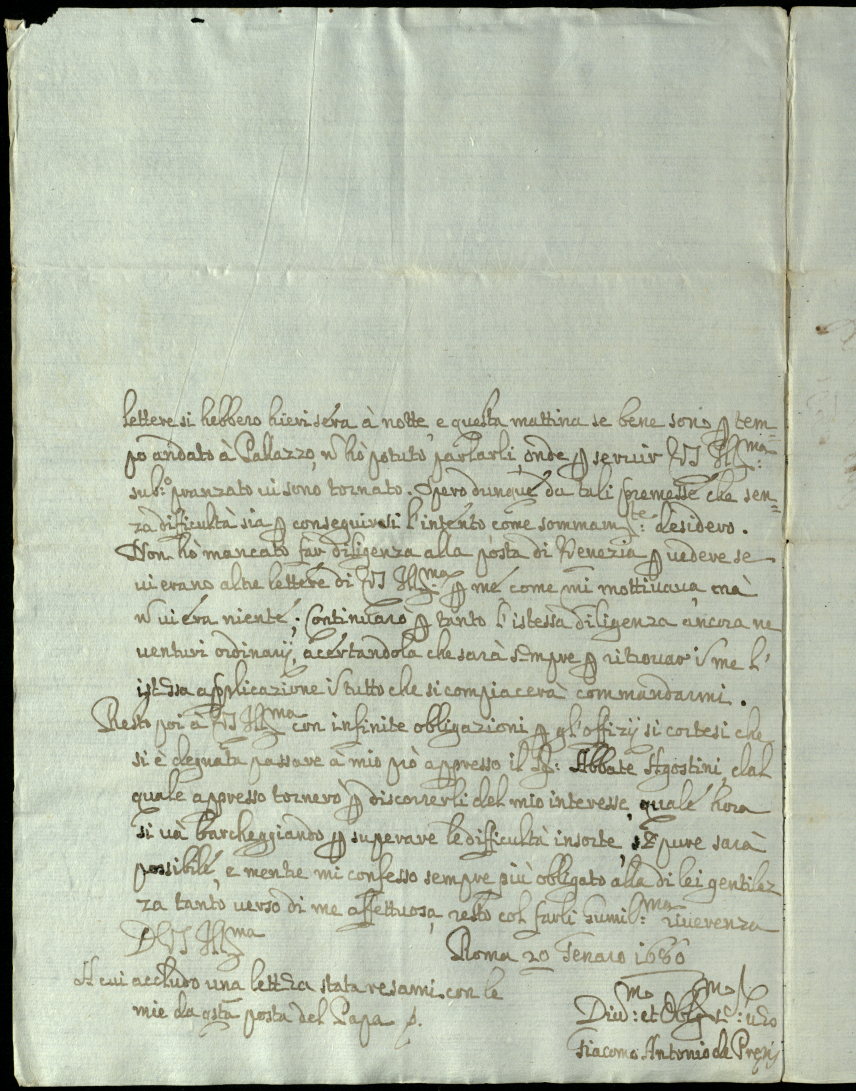 lettere si hebbero hieri séra à notte, e questa mattina se bene sono p tem=
po andato à Pallazzo, ñ hò potuto parlarli, onde p seruir VS Ill:ma
sub:o pranzato ui sono tornato. Spero dunque da tali premesse che sen=
za dificultà sia p conseguirsi l'intento come sommam:te desidero.
Non hò mancato far diligenza alla posta di Venezia p uedere se
ui erano altre lettere di VS Ill:ma p mé come mi mottiuaua, mà
ñ ui éra niente; Continuarò p tanto l'istessa diligenza ancora ne
uenturi ordinarij, acertandola che sarà sempre p ritrouar ĩ me l'
istessa applicazione ĩ tutto che si compiacerà commandarmi.
Resto poi à VS Ill:ma con infinite obligazioni p gl'offizij si cortesi che
si è degnata passare à mio prò appresso il Sr: Abbate Agostini, dal
quale appresso tornerò p discorrerli del mio interesse, quale hora
si uà barcheggiando p superare le difficultà insorte, se pure sarà
possibile, e mentre mi confesso sempre più obligato alla di lei gentilez
za tanto uerso di me affettuosa, resto col farli humil:ma riuerenza
D VS Ill:ma
Roma 20 Genaro 1680
A cui accludo una lettera stata resami con le
mie da qsta posta del Papa
Diu:mo et Obl:mo ser: uero
Giacomo Antonio de Prezij